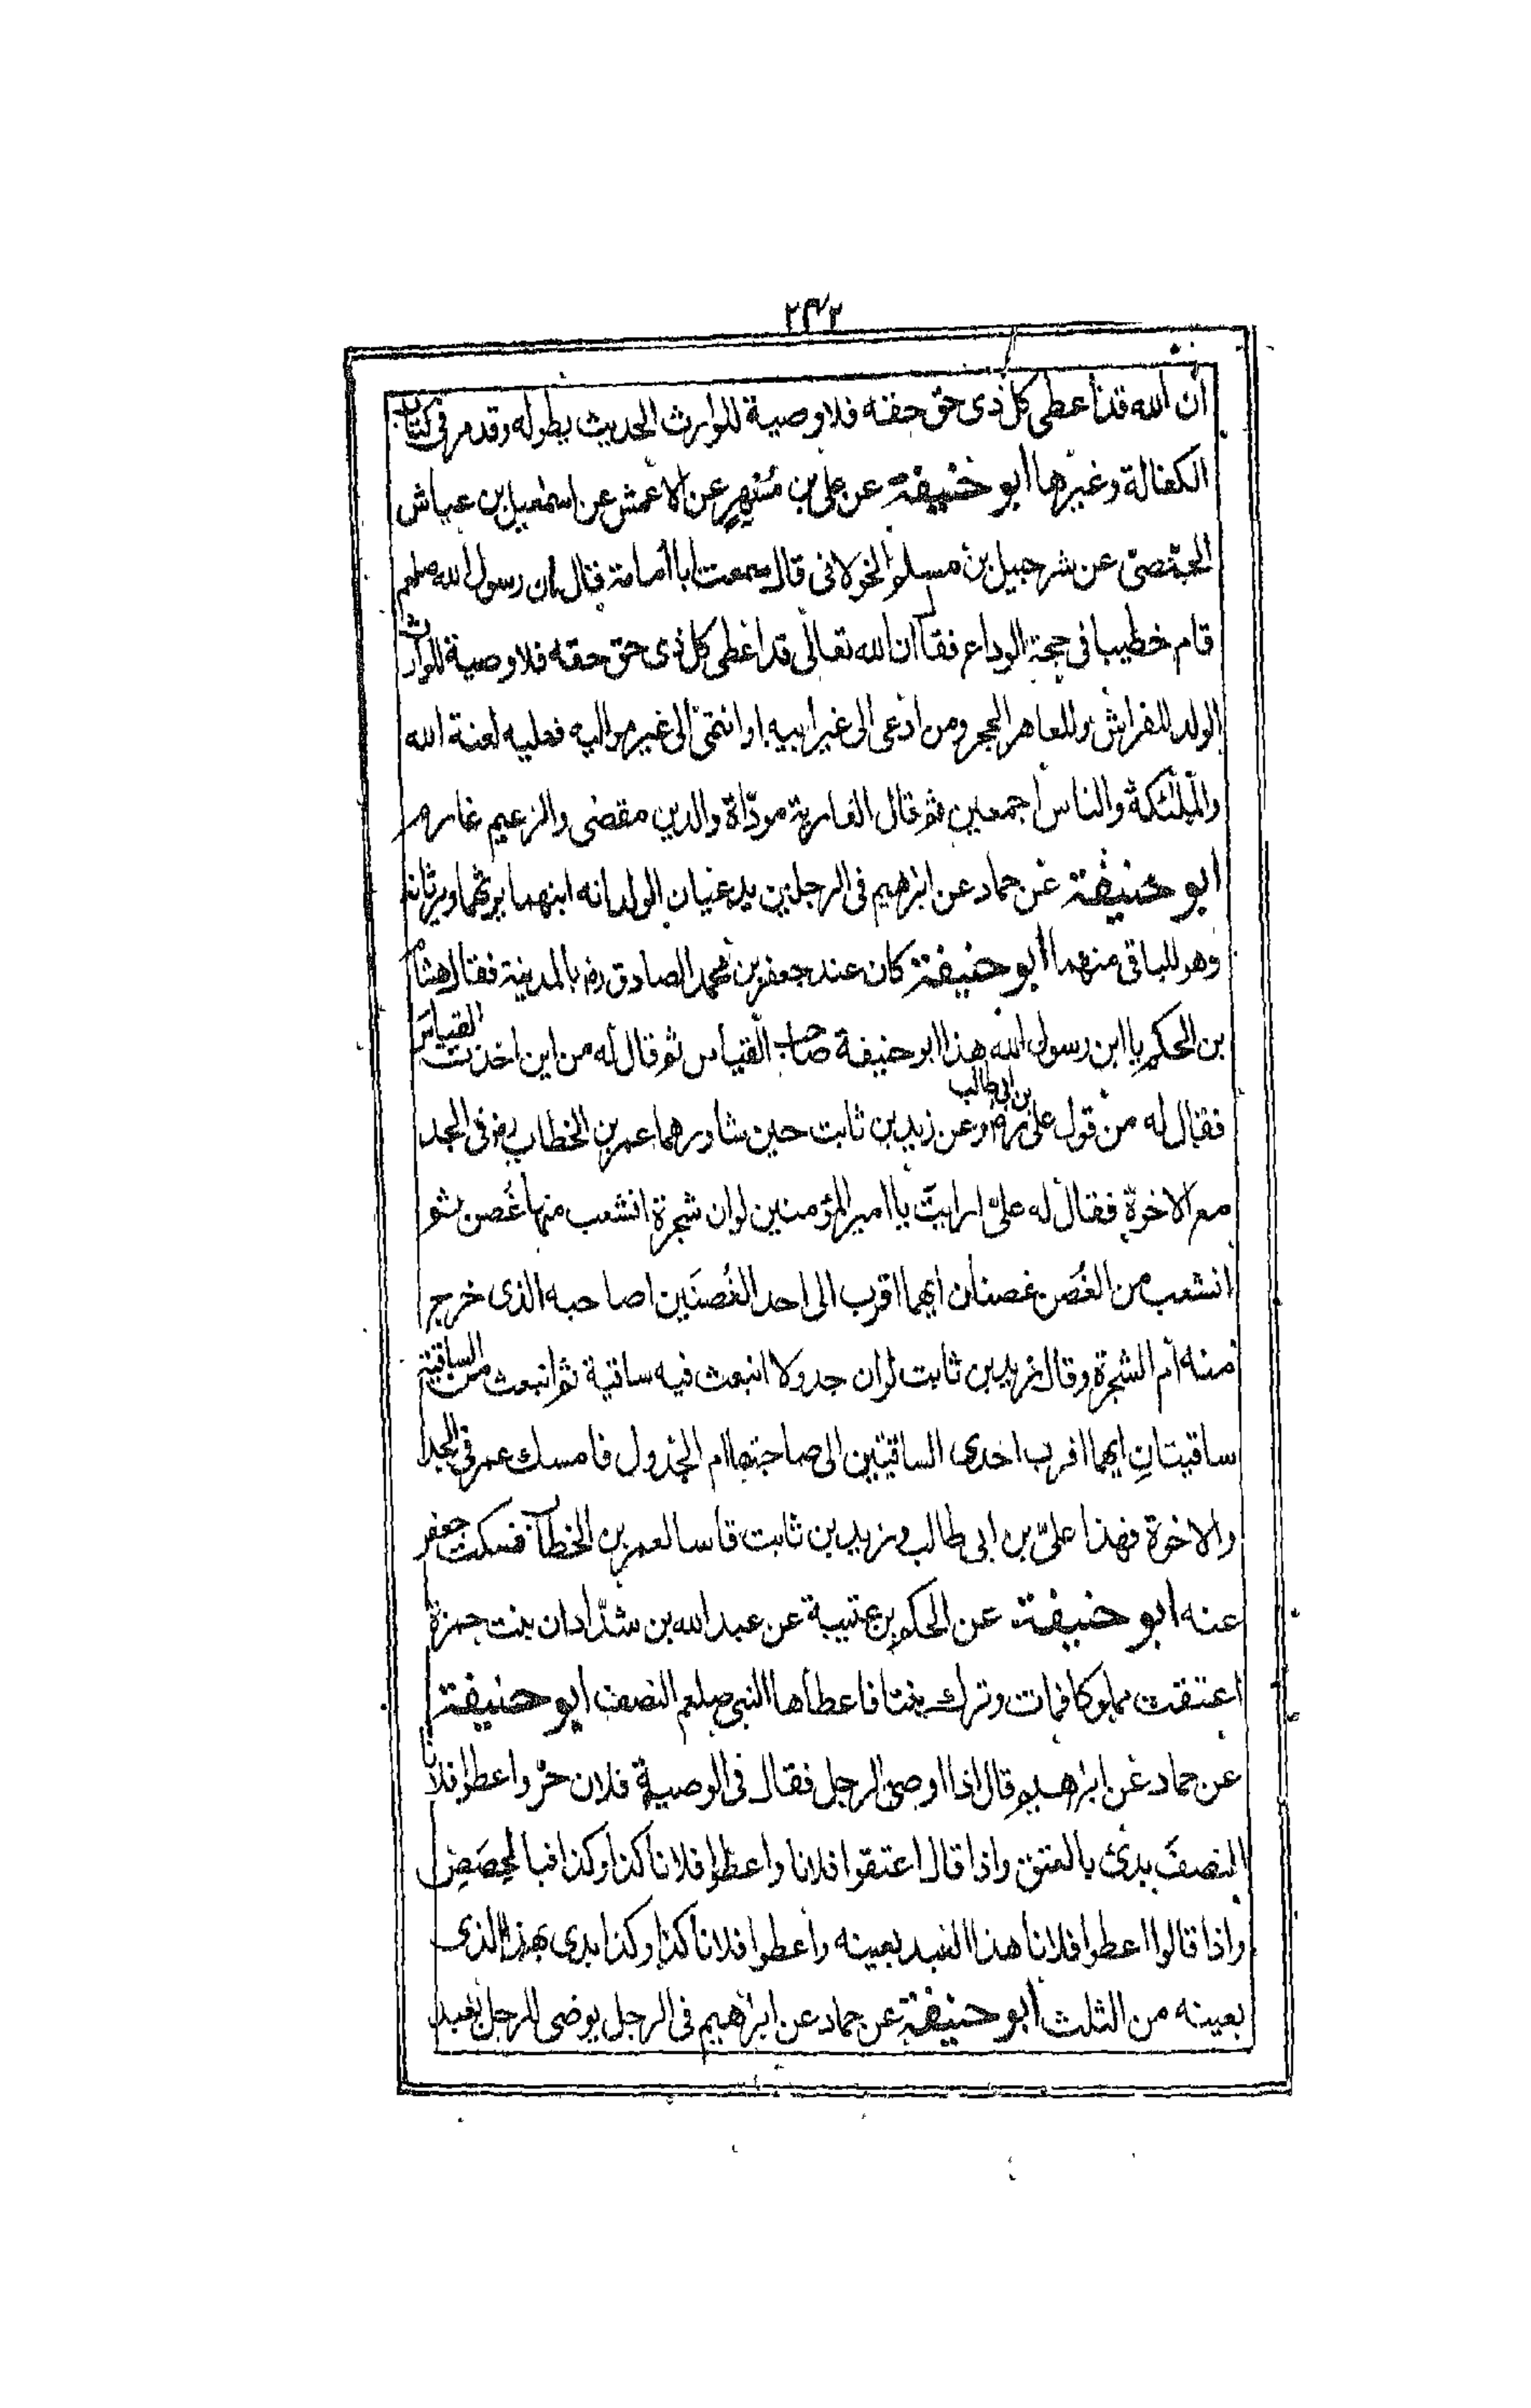 ٢٤٢
ان الله قد اعطى كل ذى حق حقه فلا وصية للوارث الحديث بطوله وقد مر فى كتاب
الكفالة وغيرها ابو حنيفة عن على بن مُسْهِرٍ عن الاعمش عن اسمٰعيل بن عياش
الحِمْصىّ عن شرحبيل بن مسلم الخولانى قال سمعت ابا امامة قال ان رسول الله صلعم
قام خطيبا فى حجة الوداع فقال ان الله تعالى قد اعطى كل ذى حق حقه فلا وصية للوارث
الولد للفراش وللعاهر الحجر ومن ادعى الى غير ابيه او انتمى الى غير مواليه فعليه لعنة الله
والملٰئكة والناس اجمعين ثم قال العارية مودّاة والدين مقضى والزعيم غارم
ابو حنيفة عن حماد عن ابرٰهيم فى الرجلين يدعيان الولد انه ابنهما يرثهما ويرثانه
وهو للباقى منهما ابو حنيفة كان عند جعفر بن محمد الصادق رض بالمدينة فقال هشام
بن الحكم يا ابن رسول الله هذا ابو حنيفة صاحب القياس ثم قال له من اين اخذت القياس
فقال له من قول على بن ابى طالب رض وعن زيد بن ثابت حين شاورهما عمر بن الخطاب رض فى الجد
مع الاخوة فقال له علىّ ارايت يا امير المؤمنين لو ان شجرة انشعب منها غُصن ثم
انشعب من الغُصن غصنان ايهما اقرب الى احد الغُصنَين اصاحبه الذى خرج
منه ام الشجرة وقال زيد بن ثابت لو ان جدولا انبعث فيه ساقية ثم انبعث من الساقية
ساقيتانِ ايهما اقرب احدى الساقيتين الى صاحبتها ام الجدول فامسك عمر فى الجد
والاخوة فهذا علىّ بن ابى طالب وزيد بن ثابت قاسا لعمر بن الخطاب فسكت جعفر
عنه ابو حنيفة عن الحكم بن عتيبة عن عبد الله بن شدّاد ان بنت حمزة
اعتقت مملوكا فمات وترك بنتا فاعطاها النبى صلعم النصف ابو حنيفة
عن حماد عن ابرٰهيم قال اذا اوصى الرجل فقال فى الوصية فلان حرّ واعطوا فلانا
النصفَ بدئ بالعتق واذا قال اعتقوا فلانا واعطوا فلانا كذا وكذا فبالحِصَصِ
واذا قالوا اعطوا فلانا هذا العبد بعينه واعطوا فلانا كذا وكذا بدى بهذا الذى
بعينه من الثلث ابو حنيفة عن حماد عن ابرٰهيم فى الرجل يوصى للرجل بعبد